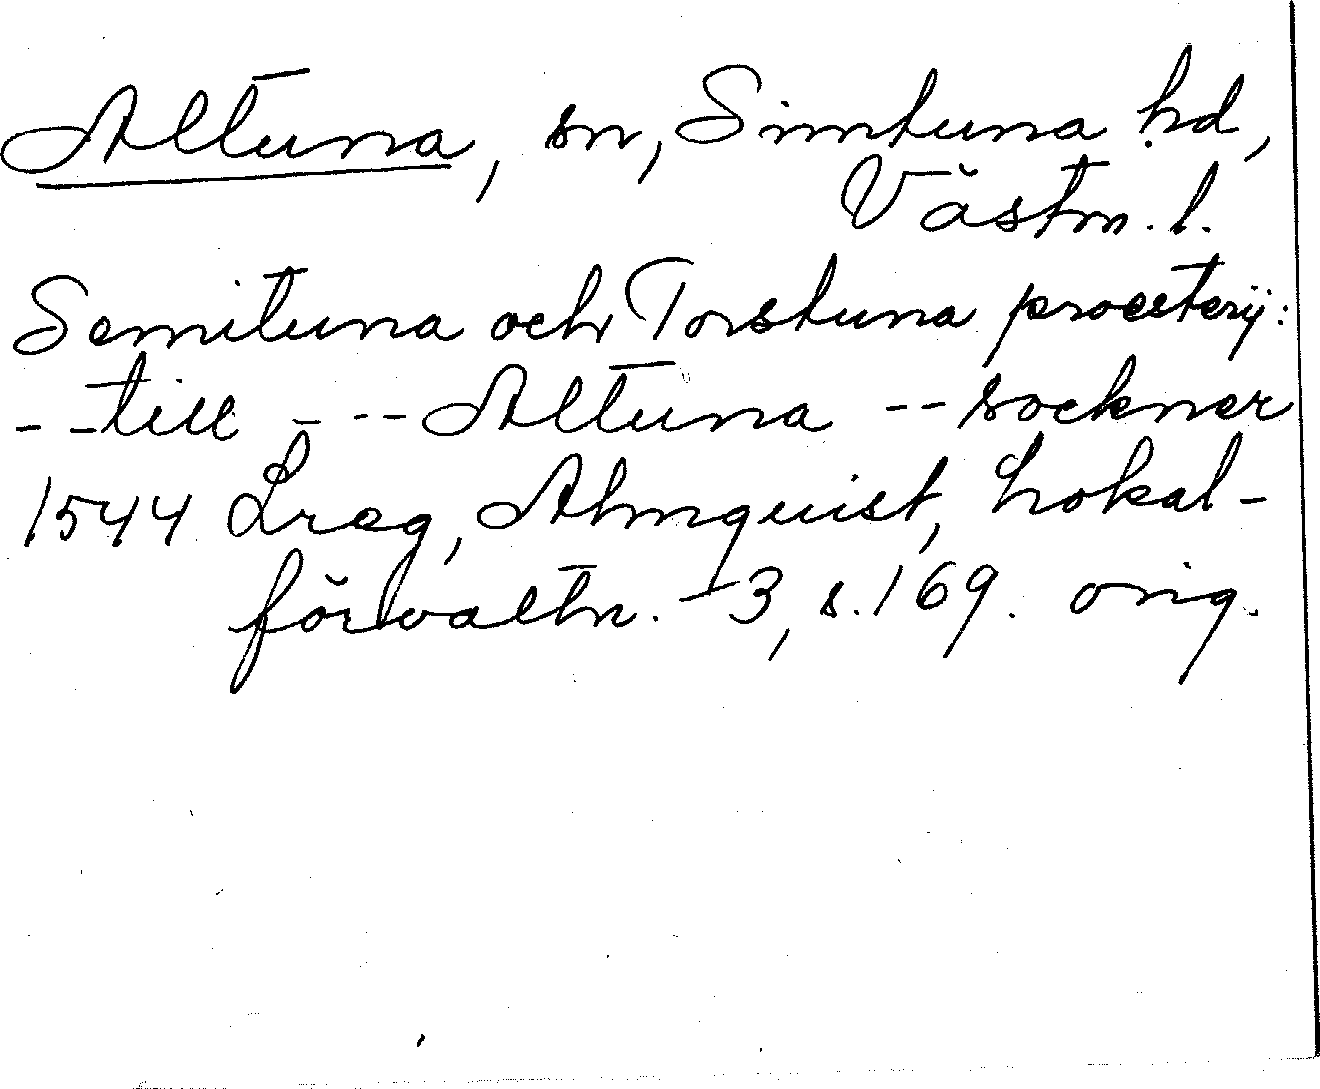 Altuna, sn, Simtuna hd,
Västm. l.
Semituna och Torstuna proesterij:
- - till - - - Altuna - - soekner
1544 Lreg, Almquist, Lokal-
förvaltn. 3, s. 169. orig.